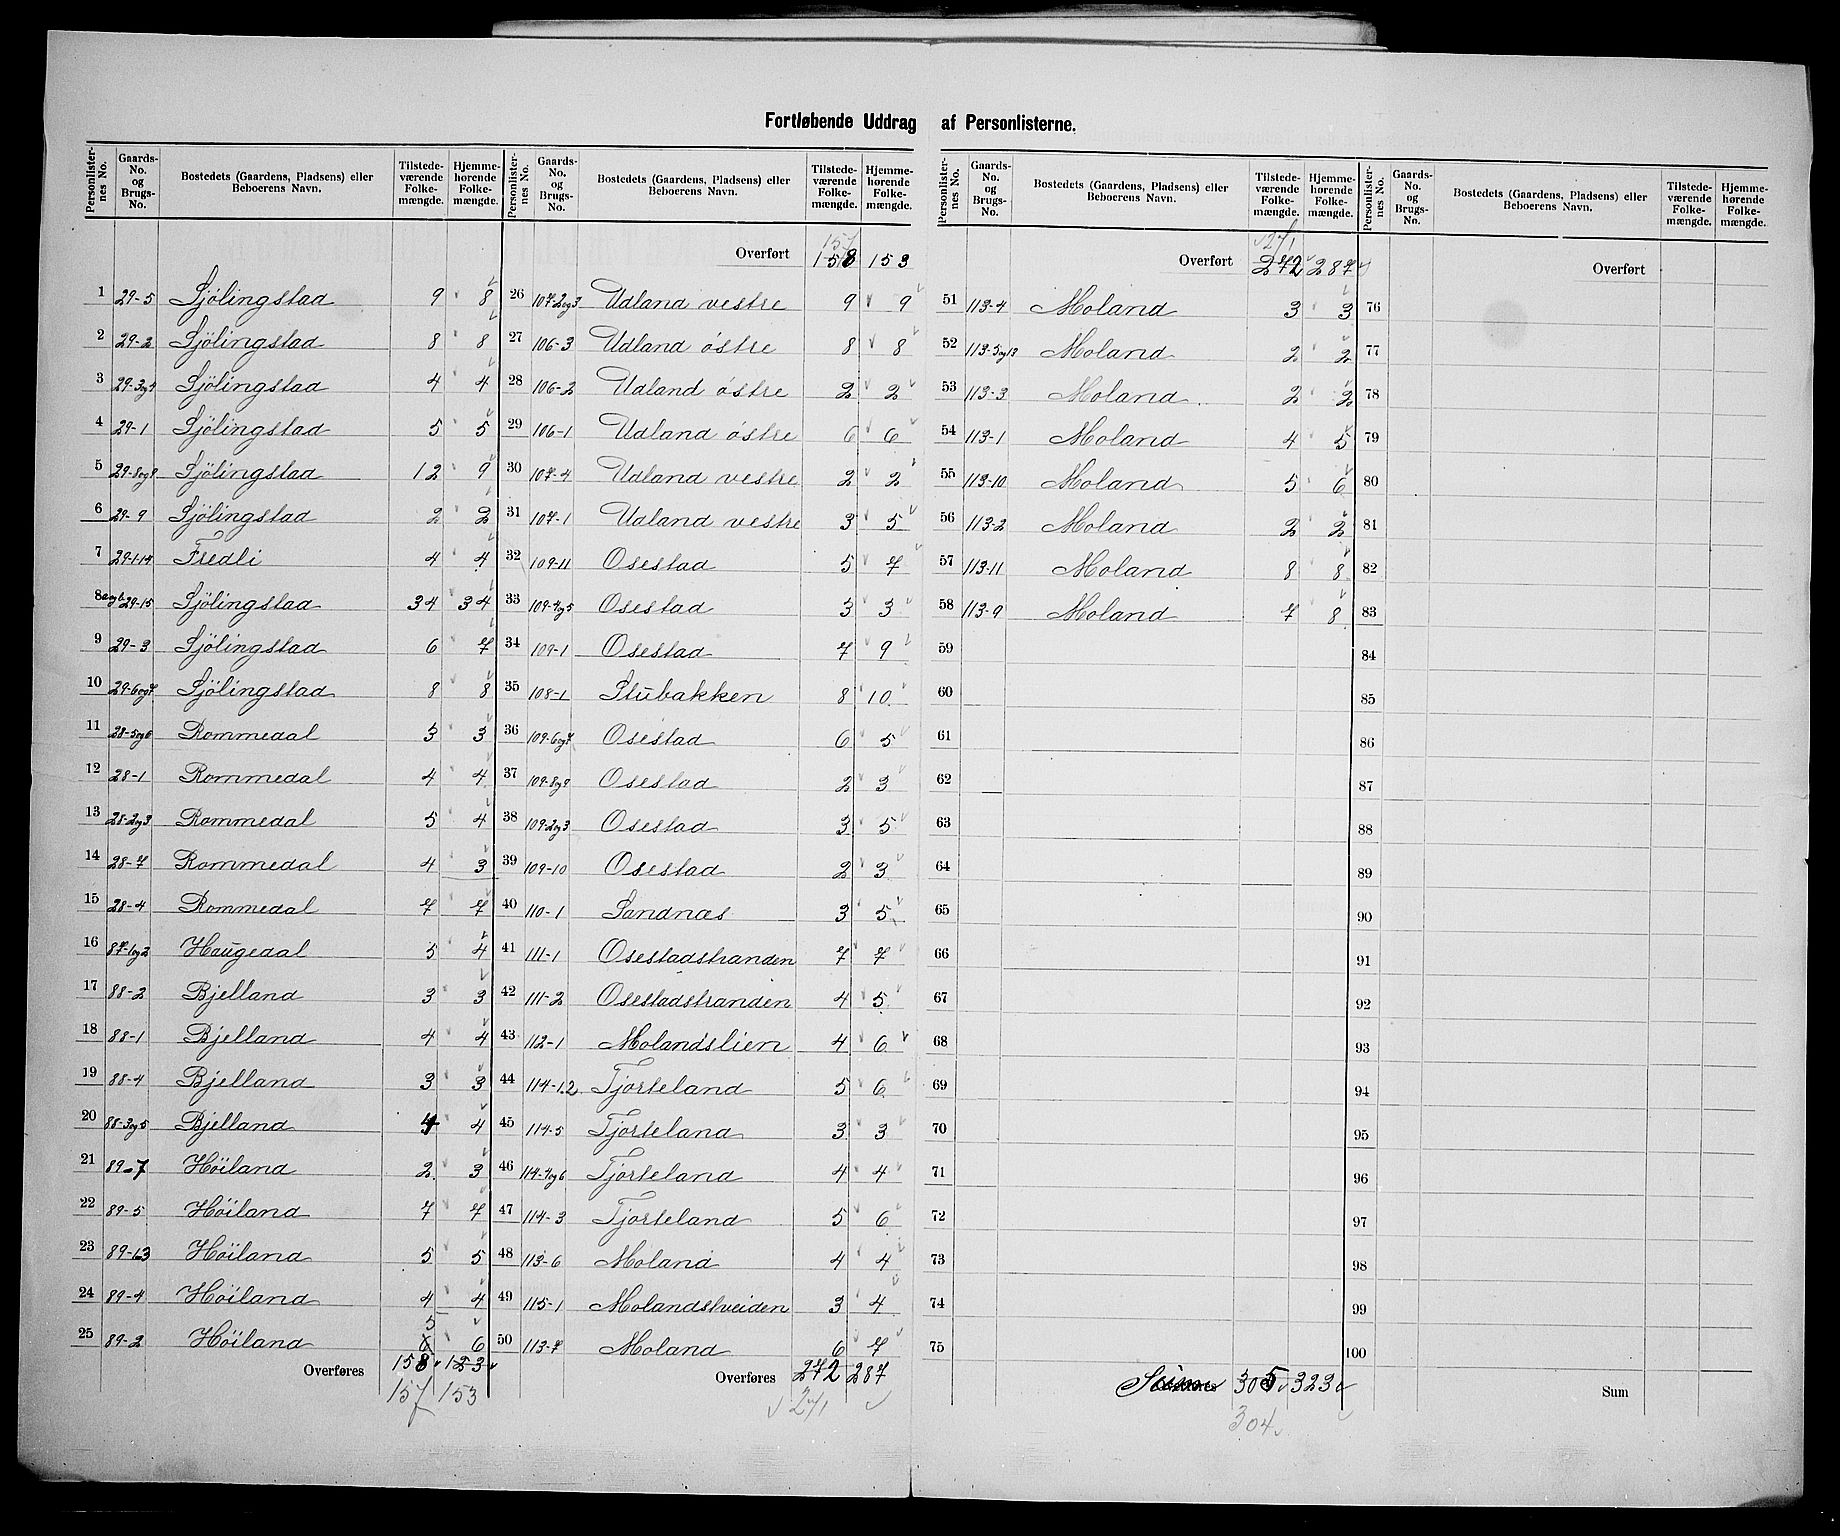 Fortløbende Uddrag af Personlisterne.
Personlisternes No. | Gaards-No. og Brugs-No. | Bostedets (Gaardens, Pladsens) eller Beboerens Navn. | Tilstedeværende Folkemængde. | Hjemmehørende Folkemængde.
1 29-5 Sjölingstad 9 8
2 29-2 Sjölingstad 8 8
3 29-3og4 Sjölingstad 4 4
4 29-1 Sjölingstad 5 5
5 29-8og9 Sjölingstad 12 9
6 29-9 Sjölingstad 2 2
7 29-1-14 Fredli 4 4
8 a og b 29-15 Sjölingstad 34 34
9 29-3 Sjölingstad 6 7
10 29-6og7 Sjölingstad 8 8
11 28-5og6 Rommedal 3 3
12 28-1 Rommedal 4 4
13 28-2og3 Rommedal 5 4
14 28-7 Rommedal 4 3
15 28-4 Rommedal 7 7
16 87-1og2 Haugedal 5 4
17 88-2 Bjelland 3 3
18 88-1 Bjelland 4 4
19 88-4 Bjelland 3 3
20 88-3og5 Bjelland 4 4
21 89-7 Höiland 2 3
22 89-5 Höiland 7 7
23 89-13 Höiland 5 5
24 89-4 Höiland 4 4
5
25 89-2 Höiland 6 6
Overføres 158 123
157 153
Personlisternes No. | Gaards-No. og Brugs-No. | Bostedets (Gaardens, Pladsens) eller Beboerens Navn. | Tilstedeværende Folkemængde. | Hjemmehørende Folkemængde.
157
Overført 158 153
26 107-2og3 Udland vestre 9 9
27 106-3 Udland östre 8 8
28 106-2 Udland östre 2 2
29 106-1 Udland östre 6 6
30 107-4 Udland vestre 2 2
31 107-1 Udland vestre 3 5
32 109-11 Osestad 5 7
33 109-4og5 Osestad 3 3
34 109-1 Osestad 7 9
35 108-1 Stubakken 8 10
36 109-6og7 Osestad 6 5
37 109-8og9 Osestad 2 3
38 109-2og3 Osestad 3 5
39 109-10 Osestad 2 3
40 110-1 Sandnæs 3 5
41 111-1 Osestadstranden 7 7
42 111-2 Osestadstranden 4 5
43 112-1 Molandslien 4 6
44 114-1.2 Tjorteland 5 6
45 114-5 Tjorteland 3 3
46 114-4og6 Tjorteland 4 4
47 114-3 Tjorteland 5 6
48 113-6 Moland 4 4
49 115-1 Molandstveiden 3 4
50 113-7 Moland 6 7
Overføres 272 287
271
Personlisternes No. | Gaards-No. og Brugs-No. | Bostedets (Gaardens, Pladsens) eller Beboerens Navn. | Tilstedeværende Folkemængde. | Hjemmehørende Folkemængde.
271
Overført 272 287
51 113-4 Moland 3 3
52 113-5og13 Moland 2 2
53 113-3 Moland 2 2
54 113-1 Moland 4 5
55 113-10 Moland 5 6
56 113-2 Moland 2 2
57 113-11 Moland 8 8
58 113-9 Moland 7 8
59
60
61
62
63
64
65
66
67
68
69
70
71
72
73
74
75
Sum 305 323
304
Personlisternes No. | Gaards-No. og Brugs-No. | Bostedets (Gaardens, Pladsens) eller Beboerens Navn. | Tilstedeværende Folkemængde. | Hjemmehørende Folkemængde.
Overført
76
77
78
79
80
81
82
83
84
85
86
87
88
89
90
91
92
93
94
95
96
97
98
99
100
Sum